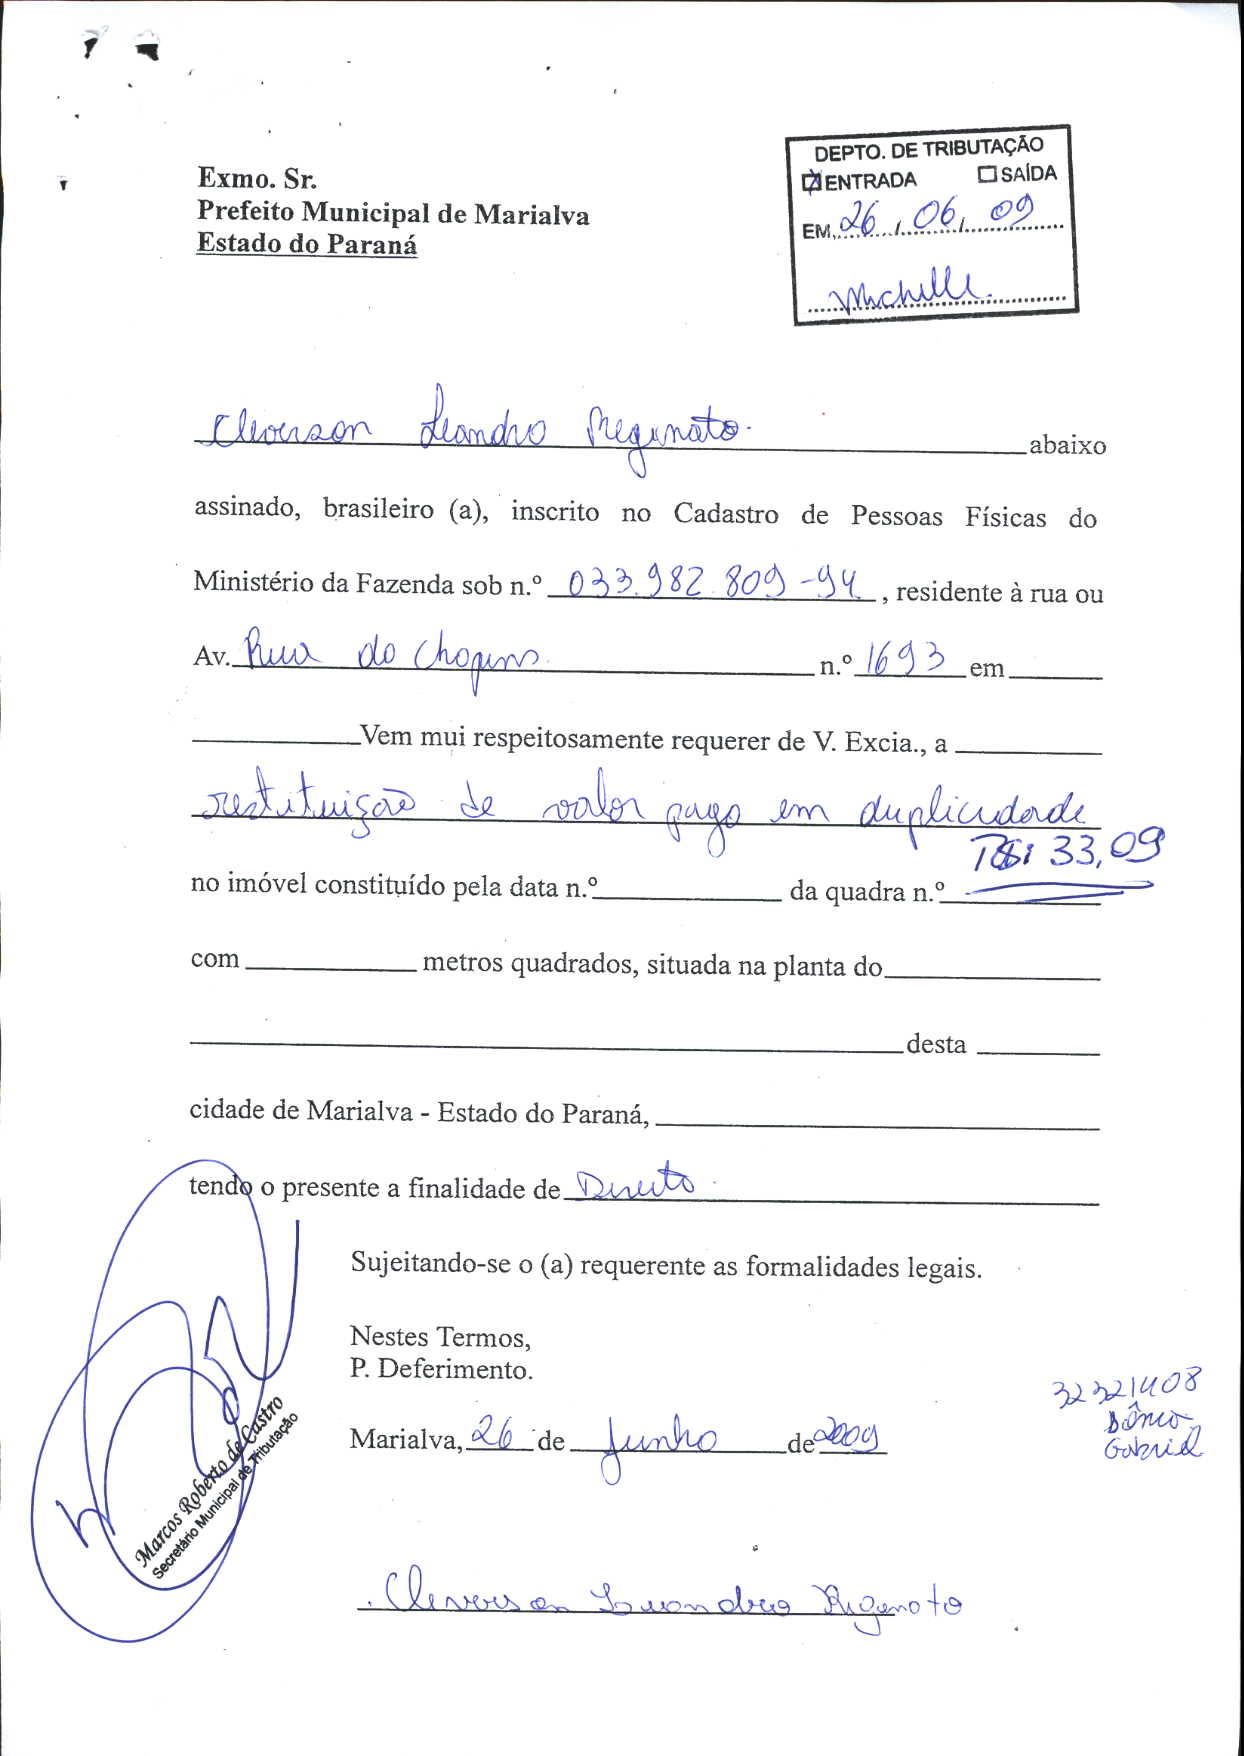 DEPTO. DE TRIBUTAÇÃO
☑ENTRADA ☐SAÍDA
EM 26 / 06 / 09
Michelle.
Exmo. Sr.
Prefeito Municipal de Marialva
Estado do Paraná
Cleverson Leandro Reginato abaixo
assinado, brasileiro (a), inscrito no Cadastro de Pessoas Físicas do
Ministério da Fazenda sob n.º 033.982.809-94, residente à rua ou
Av. Rua do n.º 1693 em
Vem mui respeitosamente requerer de V. Excia., a
restituição de valor pago em duplicidade
R$: 33,09
no imóvel constituído pela data n.º da quadra n.º
com metros quadrados, situada na planta do
desta
cidade de Marialva - Estado do Paraná,
tendo o presente a finalidade de Direito
Sujeitando-se o (a) requerente as formalidades legais.
Nestes Termos,
P. Deferimento.
32321408
Gabriel
Marialva, 26 de Junho de 2009
Marcos Roberto de Castro
Secretário Municipal de Tributação
Cleverson Leandro Reginato